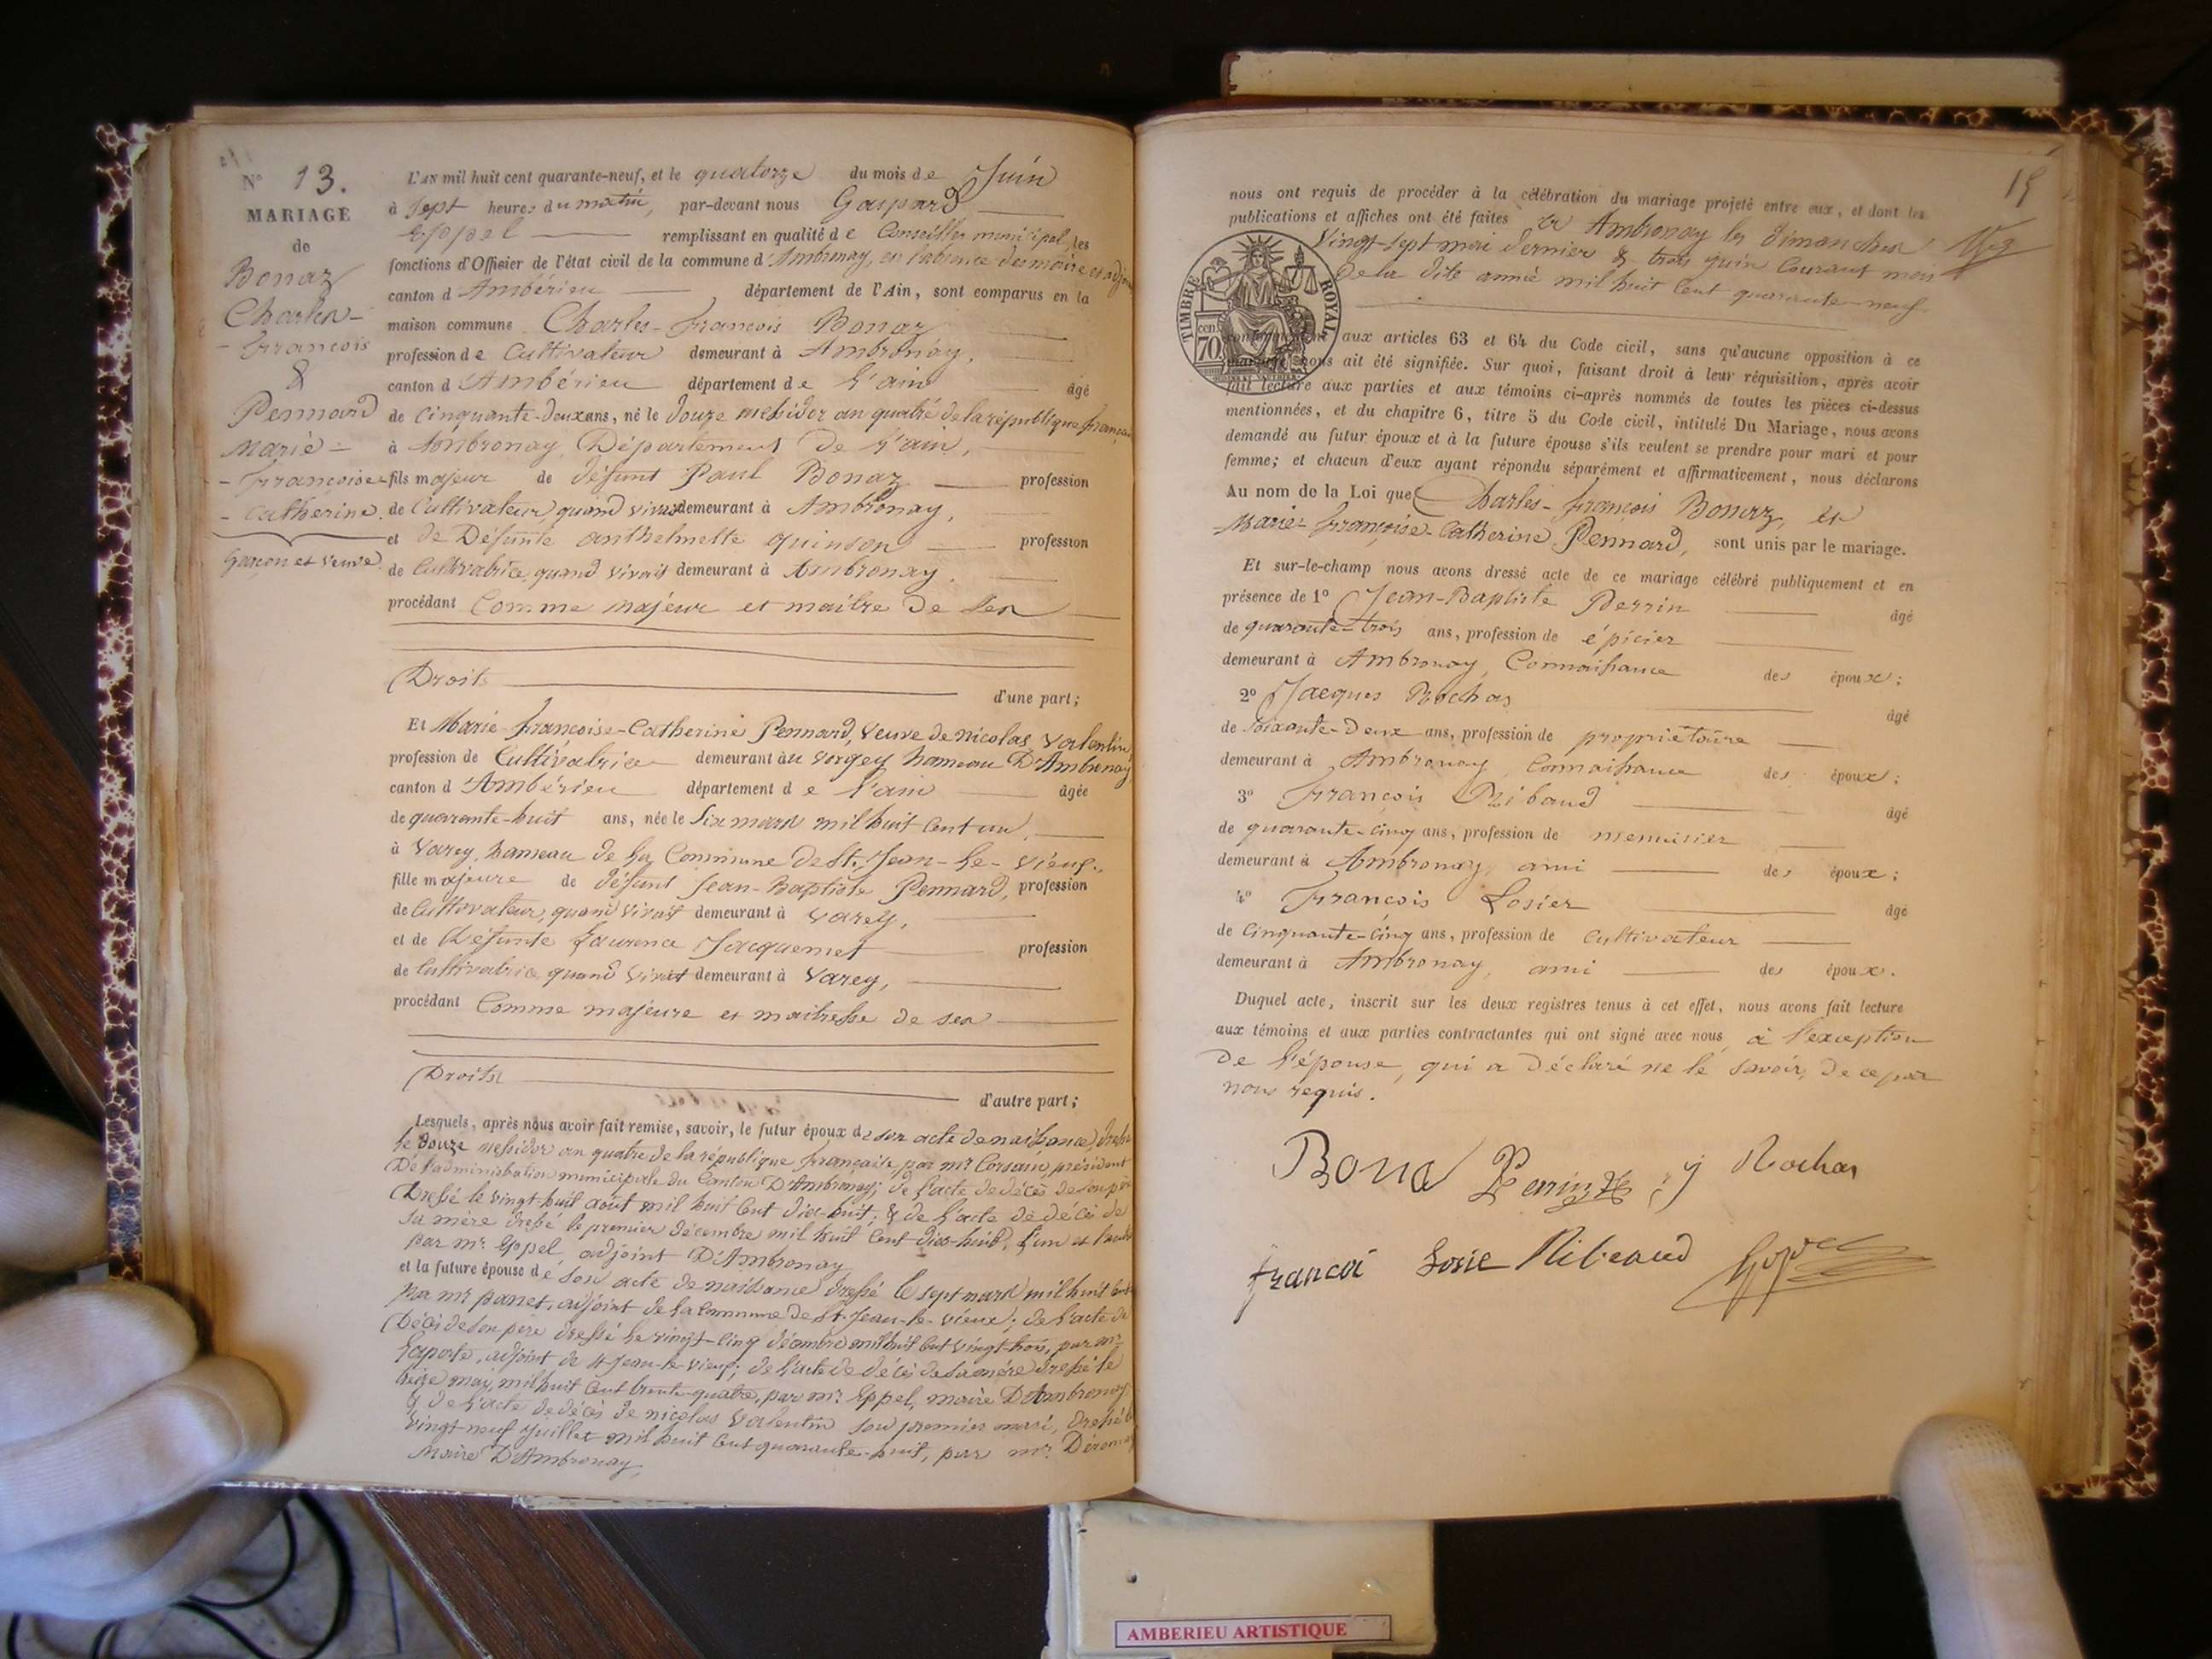 N° 13.
MARIAGE
de
Bonaz
Charles-
- françois
&
Pennard
Marie-
- françoise-
- Catherine.
Garçon et Veuve.
L'AN mil huit cent quarante-neuf, et le quatorze du mois de Juin
à Sept heures du matin, par-devant nous Gaspard
Eppel remplissant en qualité de Conseiller municipal, les
fonctions d'Officier de l'état civil de la commune d'Ambronay, en l'absence des maire et adjoint
canton d'Ambérieu département de l'Ain, sont comparus en la
maison commune Charles-françois Bonaz
profession de Cultivateur demeurant à Ambronay,
canton d'Ambérieu département de l'ain âgé
de Cinquante-deux ans, né le douze messidor an quatre de la république française
à Ambronay, Département de l'ain,
fils majeur de défunt Paul Bonaz profession
de Cultivateur, quand vivait demeurant à Ambronay,
et de Défunte anthelmette quinson profession
de Cultivatrice, quand vivait demeurant à Ambronay.
procédant Comme majeur et maître de ses
Droits d'une part;
Et Marie-françoise-Catherine Pennard, veuve de nicolas Valentin
profession de Cultivatrice demeurant au Vorgey hameau D'Ambronay
canton d'Ambérieu département de l'ain âgée
de quarante-huit ans, née le Six mars mil huit Cent un,
à Varey, hameau de la Commune de St. Jean-le-Vieux.,
fille majeure de défunt Jean-Baptiste Pennard, profession
de Cultivateur, quand vivait demeurant à Varey,
et de Défunte Laurence Jacquemet profession
de Cultivatrice quand vivait demeurant à Varey,
procédant Comme majeure et maitresse de ses
Droits d'autre part;
Lesquels, après nous avoir fait remise, savoir, le futur époux de son acte de naissance, dressé
le douze messidor an quatre de la république française, par mr Corsain, président
De l'administration municipale du Canton D'Ambronay; de l'acte de décès de son père
Dressé le vingt-huit août mil huit Cent dix-huit; & de l'acte de décès de
sa mère dressé le premier décembre mil huit Cent dix-huit, l'un et l'autre
par mr. Eppel, adjoint D'Ambronay
et la future épouse de son acte de naissance dressé le sept mars mil huit Cent
par mr panet, adjoint de la Commune de St. Jean-le-vieux; de l'acte de
Décès de son père dressé le vingt-cinq décembre mil huit Cent vingt-trois, par mr
Laporte, adjoint de St Jean-le-vieux; de l'acte de décès de sa mère dressé le
may mil huit Cent trente-quatre, par mr. Eppel, maire D'Ambronay
& de l'acte de décès de nicolas Valentin son premier mari, dressé le
vingt-neuf juillet mil huit Cent quarante-huit, par mr.
Maire D'Ambronay,
15
nous ont requis de procéder à la célébration du mariage projeté entre eux, et dont les
publications et affiches ont été faites à Ambronay les dimanches
Vingt-sept mai dernier & trois juin Courant mois
De la dite année mil huit Cent quarante-neuf.
TIMBRE ROYAL
cen. 70
conformément aux articles 63 et 64 du Code civil, sans qu'aucune opposition à ce
mariage nous ait été signifiée. Sur quoi, faisant droit à leur réquisition, après avoir
fait lecture aux parties et aux témoins ci-après nommés de toutes les pièces ci-dessus
mentionnées, et du chapitre 6, titre 5 du Code civil, intitulé Du Mariage, nous avons
demandé au futur époux et à la future épouse s'ils veulent se prendre pour mari et pour
femme; et chacun d'eux ayant répondu séparément et affirmativement, nous déclarons
Au nom de la Loi que Charles-françois Bonaz, et
Marie-françoise-Catherine Pennard, sont unis par le mariage.
Et sur-le-champ nous avons dressé acte de ce mariage célébré publiquement et en
présence de 1° Jean-Baptiste Perrin âgé
de quarante-trois ans, profession de épicier
demeurant à Ambronay, Connaissance des époux;
2° Jacques Rochas âgé
de soixante-deux ans, profession de propriétaire
demeurant à Ambronay, Connaissance des époux;
3° François Ribaud âgé
de quarante-cinq ans, profession de menuisier
demeurant à Ambronay, ami des époux;
4° François Losier âgé
de Cinquante-cinq ans, profession de Cultivateur
demeurant à Ambronay, ami des époux.
Duquel acte, inscrit sur les deux registres tenus à cet effet, nous avons fait lecture
aux témoins et aux parties contractantes qui ont signé avec nous, à l'exception
De l'épouse, qui a déclaré ne le savoir, de ce par
nous requis.
Bona Perrin j Rochas
françoi Losie Ribeaud Eppel
AMBERIEU ARTISTIQUE